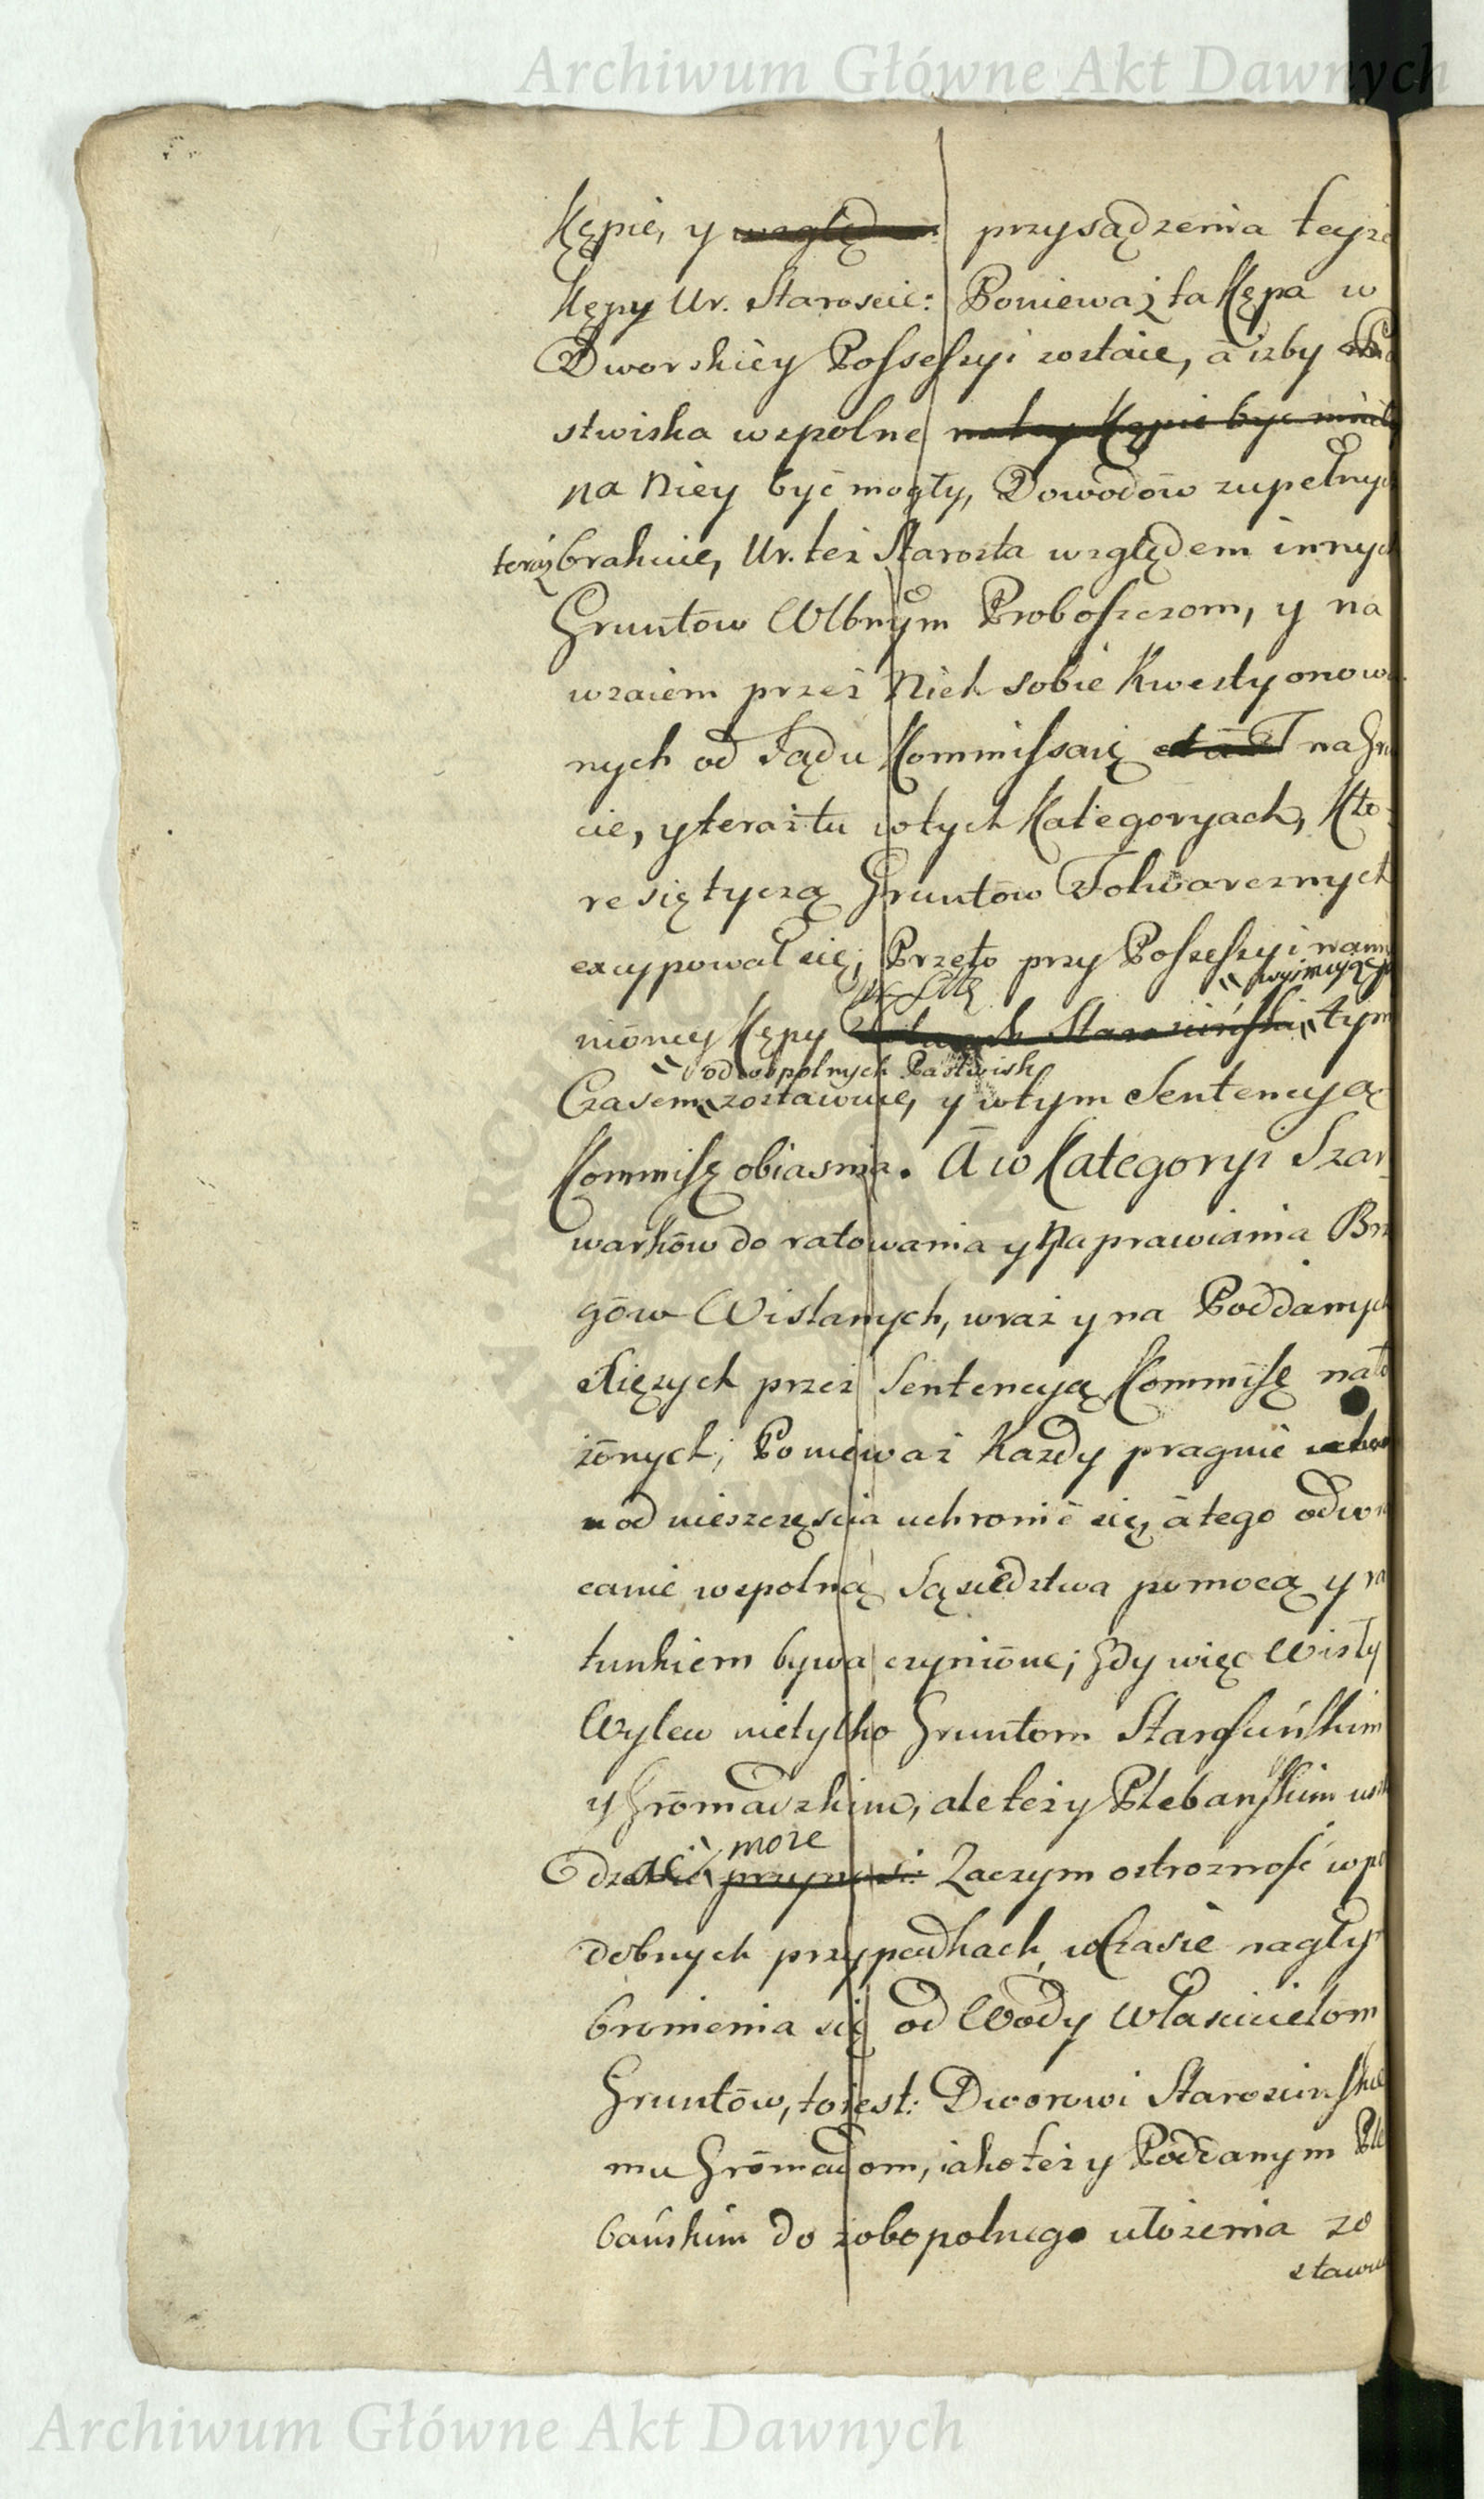 Archiwum Główne Akt Dawnych
Kępie, y względem przysądzenia teyże
Kępy Ur. Staroscie: Ponieważ ta Kępa w
Dworskiey Possessyi zostaie, á iżby
stwiska wspolne na tey Kępie byc miały
na Niey być mogły, Dowodów zupełnych
teraz brakuie, Ur. też Starosta względem innych
Gruntow Wlbnym Proboszczom, y na
wzaiem przez Nich sobie Kwestyonowa
nych od Sądu Kommissarię na Gru
cie, y teraz tu w tych Kategoryach, Kto
re się tyczą Gruntów Folwarcznych
excypował się; Przeto przy Possessyi namie
wyimuiąc
nióney Kępy Starościńską tym
od wspolnych Pastwisk
Czasem zostawuie, y w tym Sentencyą
Kommisę obiasnia. A w Kategoryi Szar
warków do ratowania y Naprawiania Brze
gów Wislanych, wraz y na Poddanych
Xięzych przez Sentencyą Kommisę nało
żónych; Ponieważ Kazdy pragnie
od nieszczęscia uchronić się, á tego odwra
canie wspolną Sąsiedztwa pomocą y ra
tunkiem bywa czynióne; Gdy więc Wisły
Wylew nietylko Gruntom Starosćińskim
y Grómadzkim, ale też y Plebańskim
more
dzać przynosi: Zaczym ostrozność w po
dobnych przypadkach, w Czasie nagłym
bronienia się od Wody Włascicielom
Gruntów, to iest: Dworowi Starościnskie
mu Grómadom, iako też y Poddanym Ple
bańskim do zobopolnego ułożenia zo
stawuie
Archiwum Główne Akt Dawnych